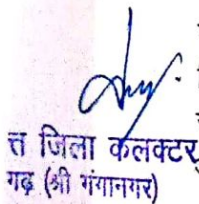 त्त जिला कलक्टर
गढ़ (श्री गंगानगर)